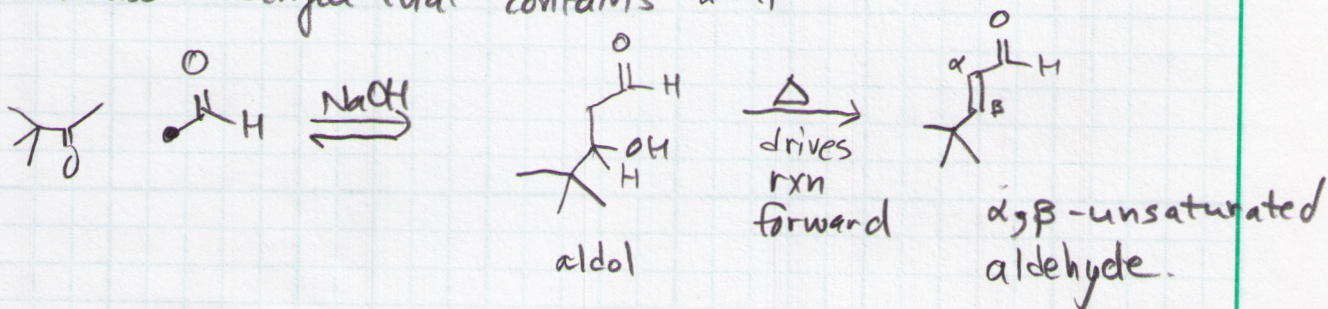 that contains a
O
O
NaOH
H
O
O
H
OH
H
aldol
Δ
drives
rxn
forward
O
α
H
β
α,β-unsaturated
aldehyde.